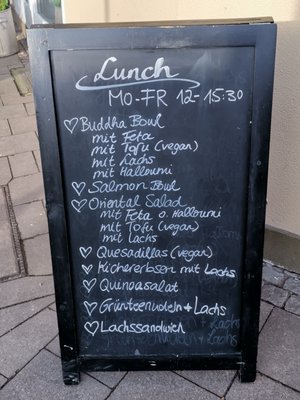 Lunch
MO-FR 12-15:30
Buddha Bowl
mit Feta
mit Tofu (vegan)
mit Lachs
mit Halloumi
Salmon Bowl
Oriental Salad
mit Feta o. Halloumi
mit Tofu (vegan)
mit Lachs
Quesadillas (vegan)
Kichererbsen mit Lachs
Quinoasalat
+ Lachs
Lachssandwich